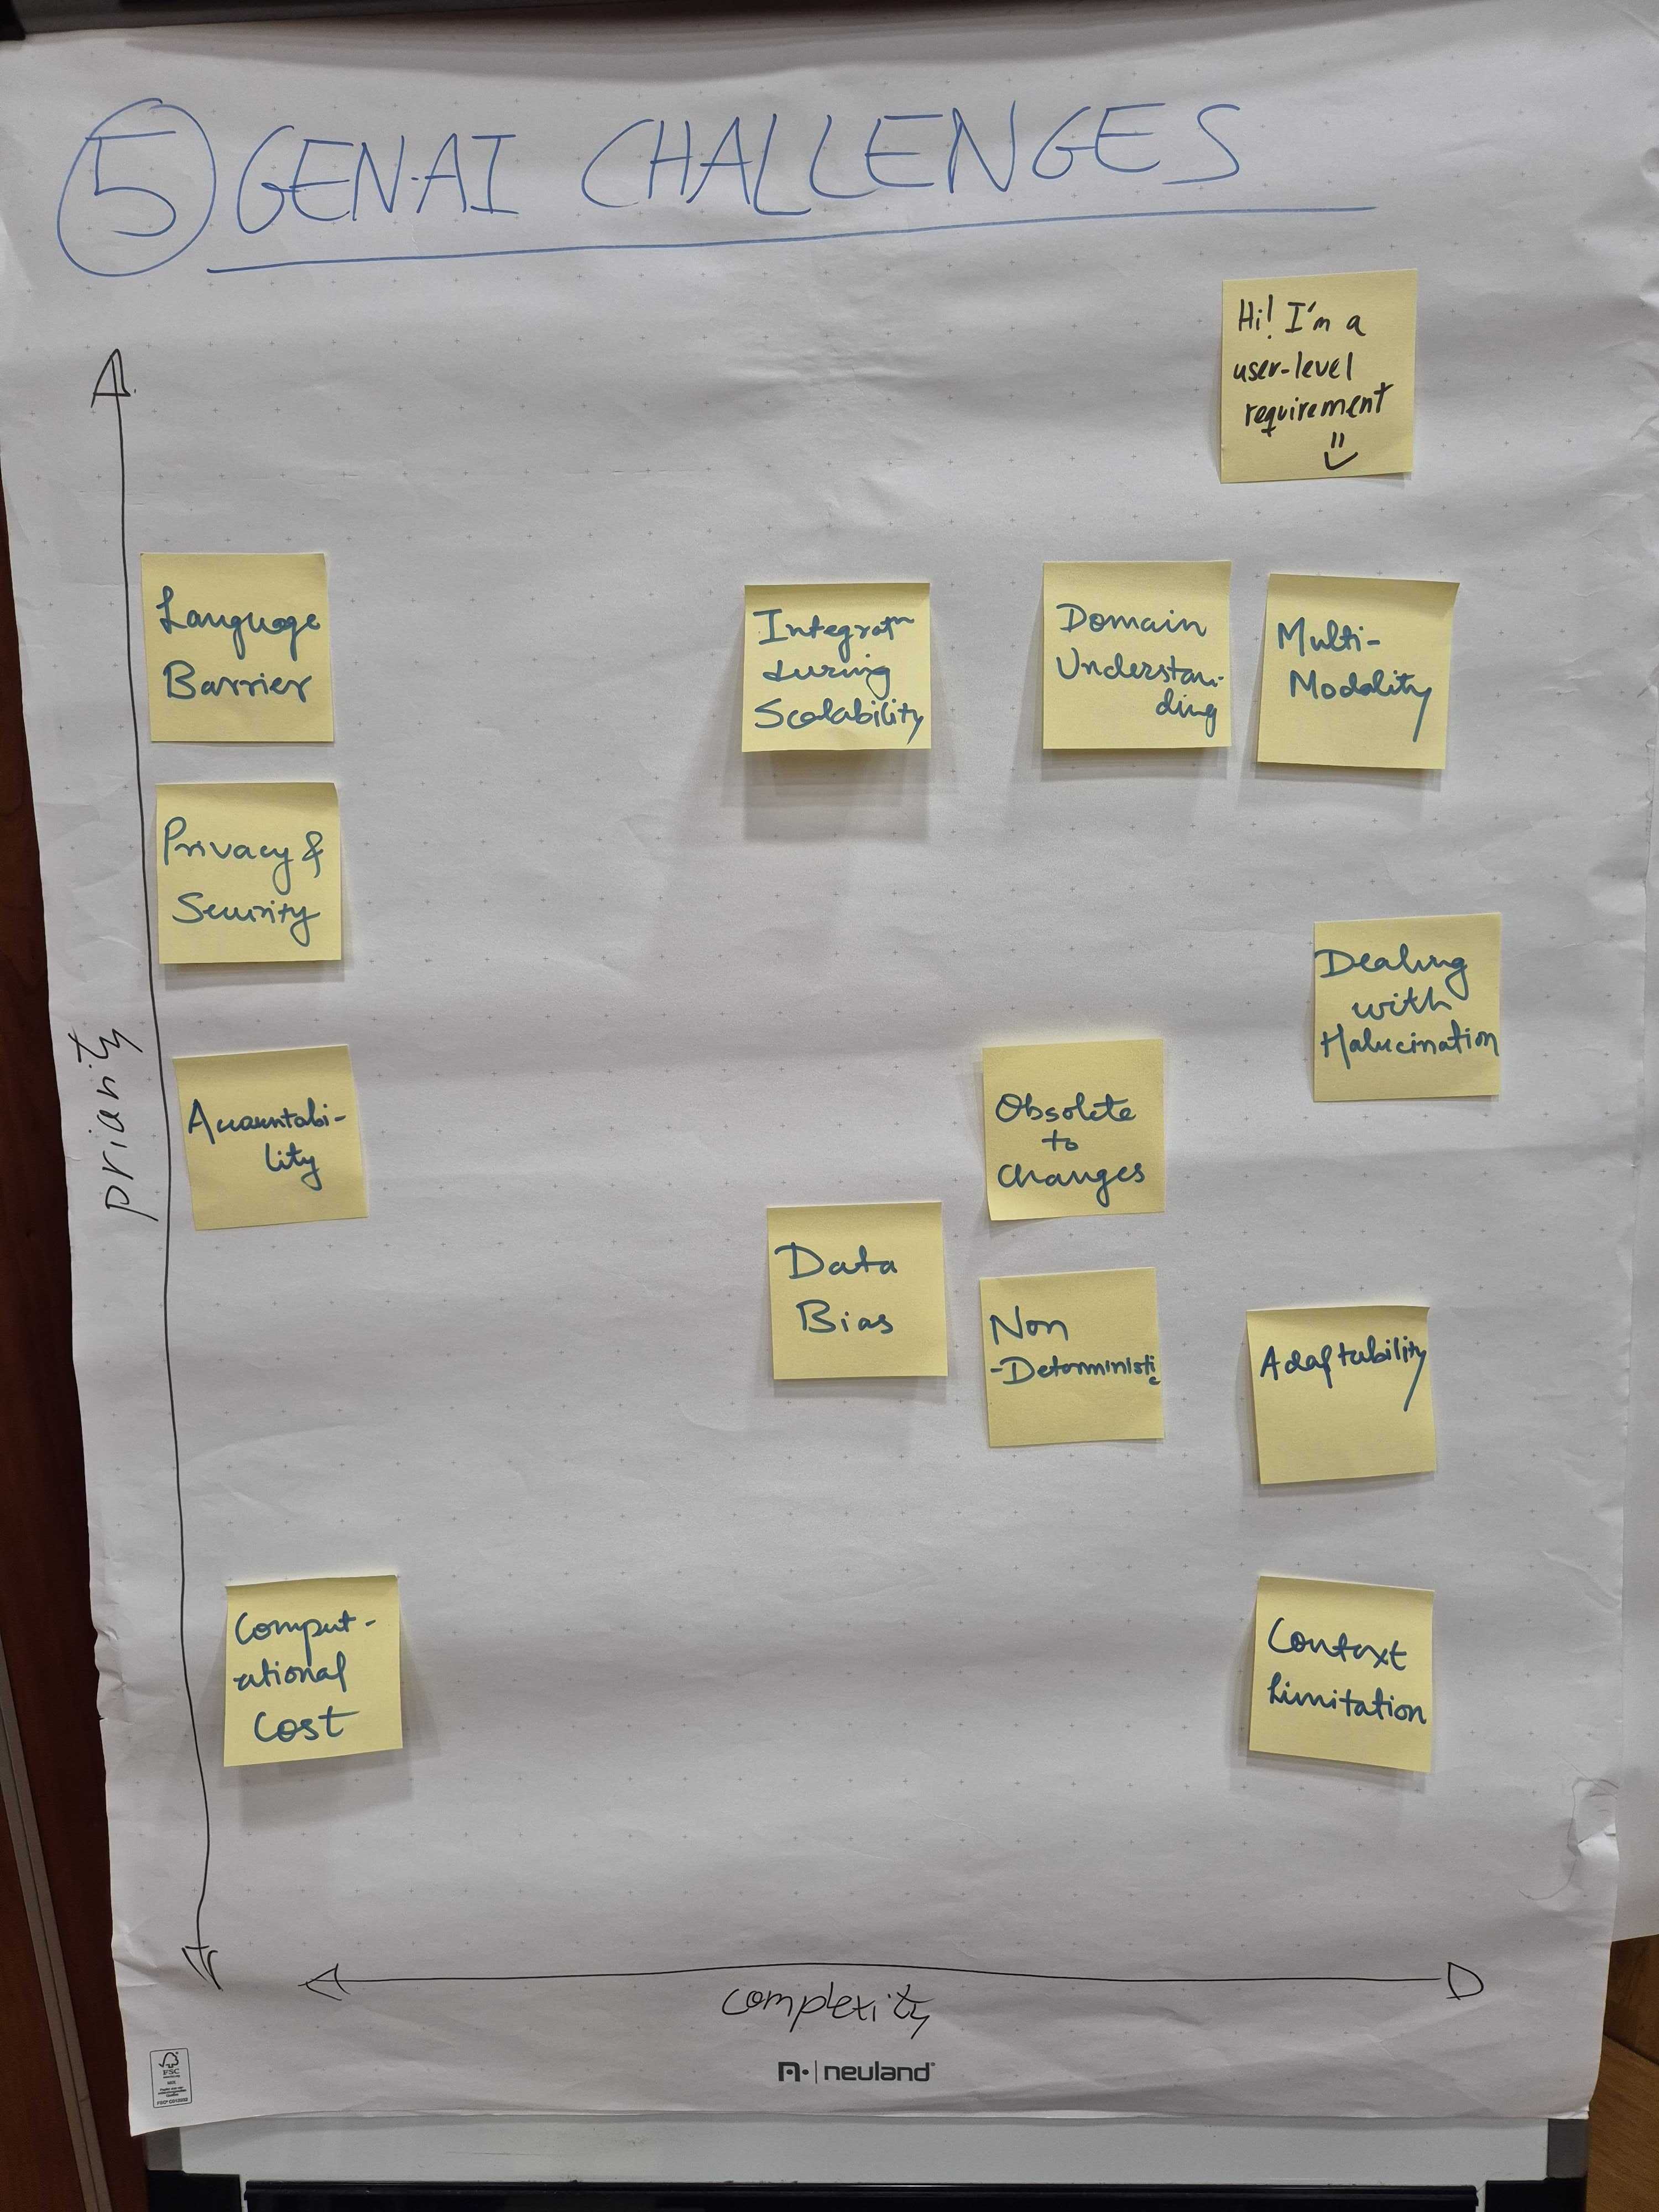 5 GEN-AI CHALLENGES
Hi! I'm a
user-level
requirement
Language
Barrier
Integratn
during
Scalability
Domain
Understan-
ding
Multi-
Modality
Privacy &
Security
Dealing
with
Halucination
Accountabi-
lity
Obsolete
to
Changes
Data
Bias
Non
-Deterministic
Adaptability
Comput-
ational
Cost
Context
Limitation
priority
complexity
neuland
FSC